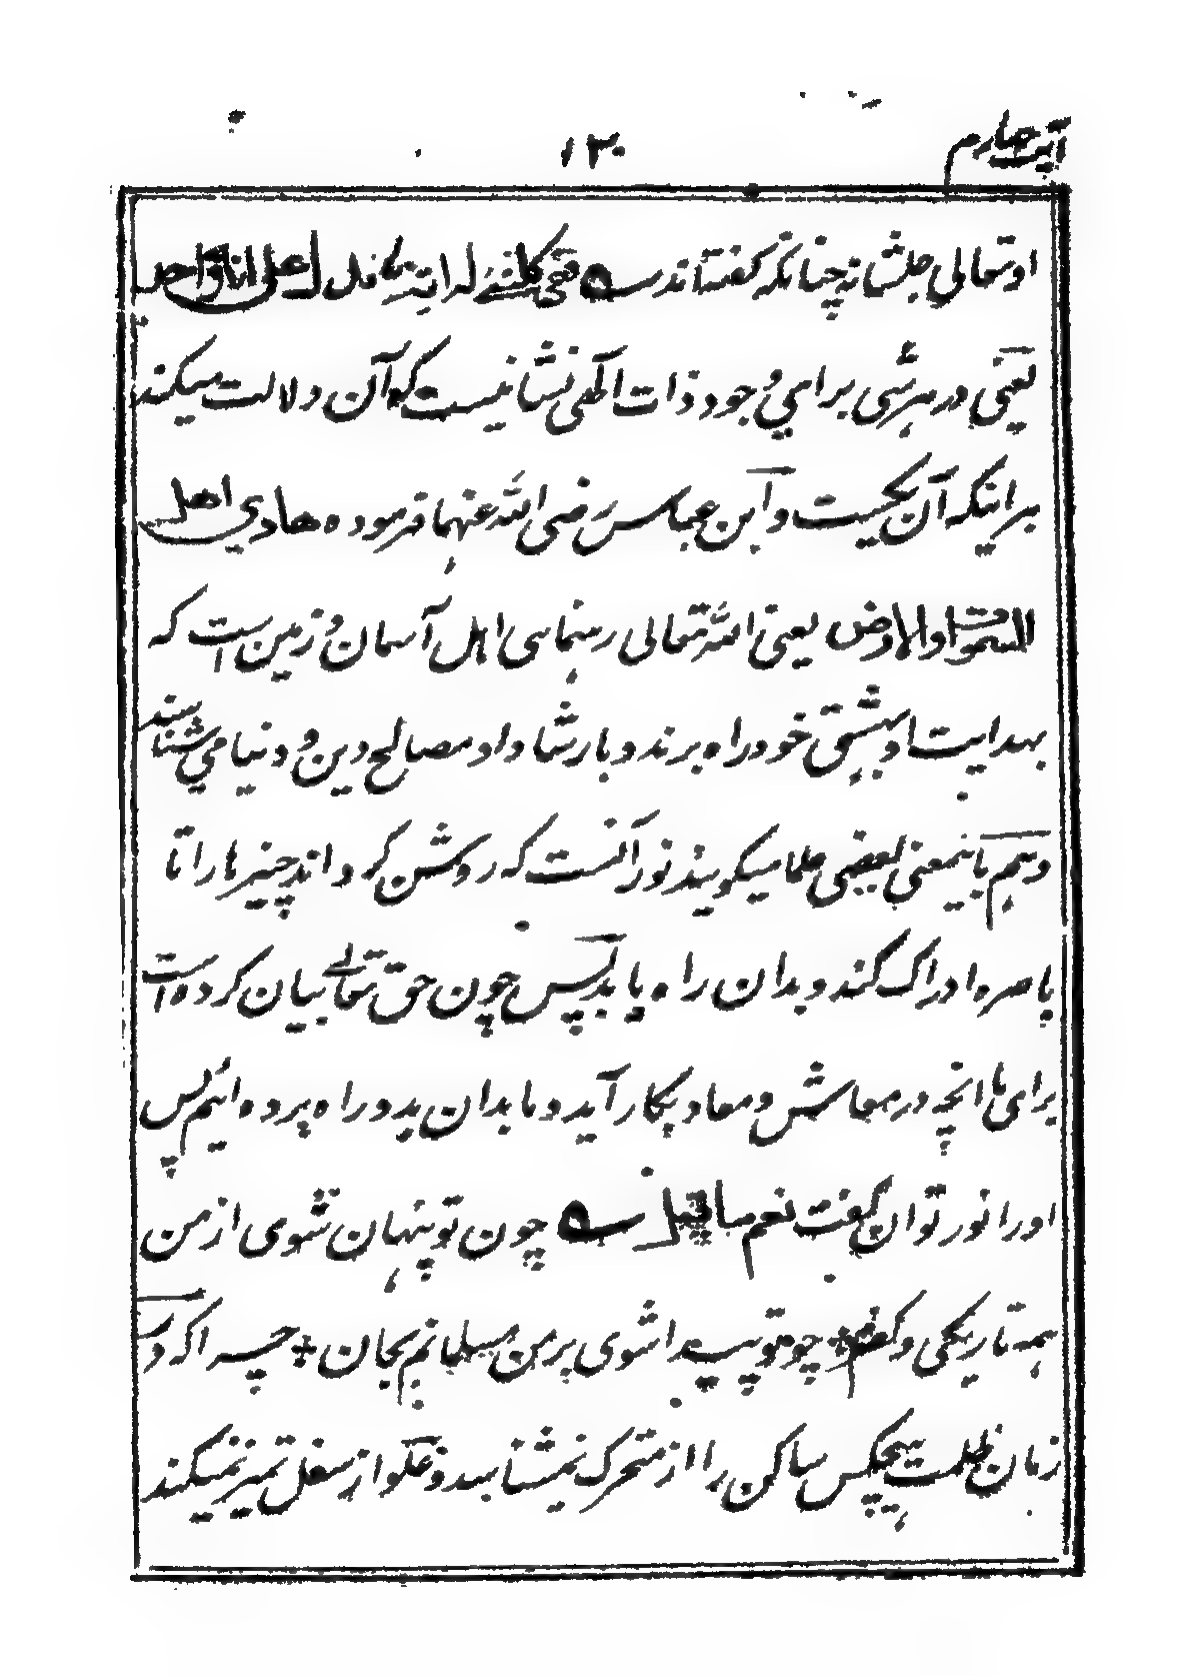 آیت چهارم
۱۳۰
او تعالی جلشانه چنانکه گفته‌اند ففی کل شئ له ایة تدل علی انه واحد
یعنی در هر شی برای وجود ذات الٓهی نشانیست که آن دلالت میکند
برانیکه آن یکیست و ابن عباس رضی الله عنهما فرموده هادی اهل
السموات والارض یعنی الله تعالی رهنمای اهل آسمان و زمین است که
بهدایت او بهشتی خود راه برند و بارشاد او مصالح دین و دنیا می شناسند
و هم باینمعنی بعضی علما میگویند نور آنست که روشن گرداند چیزها را تا
باصره ادراک کند و بدان راه یابد پس چون حق تعالی بیان کرده است
برای ما انچه در معاش و معاد بکار آید و ما بدان بدو راه برده ایم پس
او را نور توان گفت نعم ما قیل چون تو پنهان شوی از من
همه تاریکی و کفرم + چو تو پیدا شوی بر من مسلمانم بجان + چه اگر در
زمان ظلمت هیچکس ساکن را از متحرک نمیشناسد و علو از سفل تمیز نمیکند